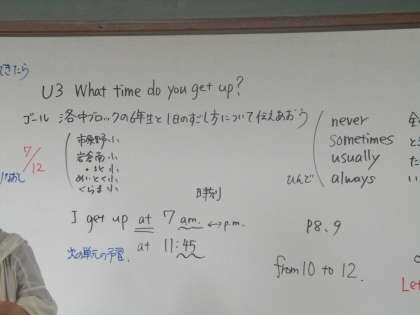 できたら
U3 What time do you get up?
ゴール 洛中ブロックの6年生と1日のすごし方について伝えあおう
市原野小
岩倉南小
〃 北小
めいとく小
くらま小
7/12
never
sometimes
usually
always
ひんど
時刻
I get up at 7 a.m. ↔ p.m.
at 11:45
次の単元の予習
P8、9
from 10 to 12.
Let